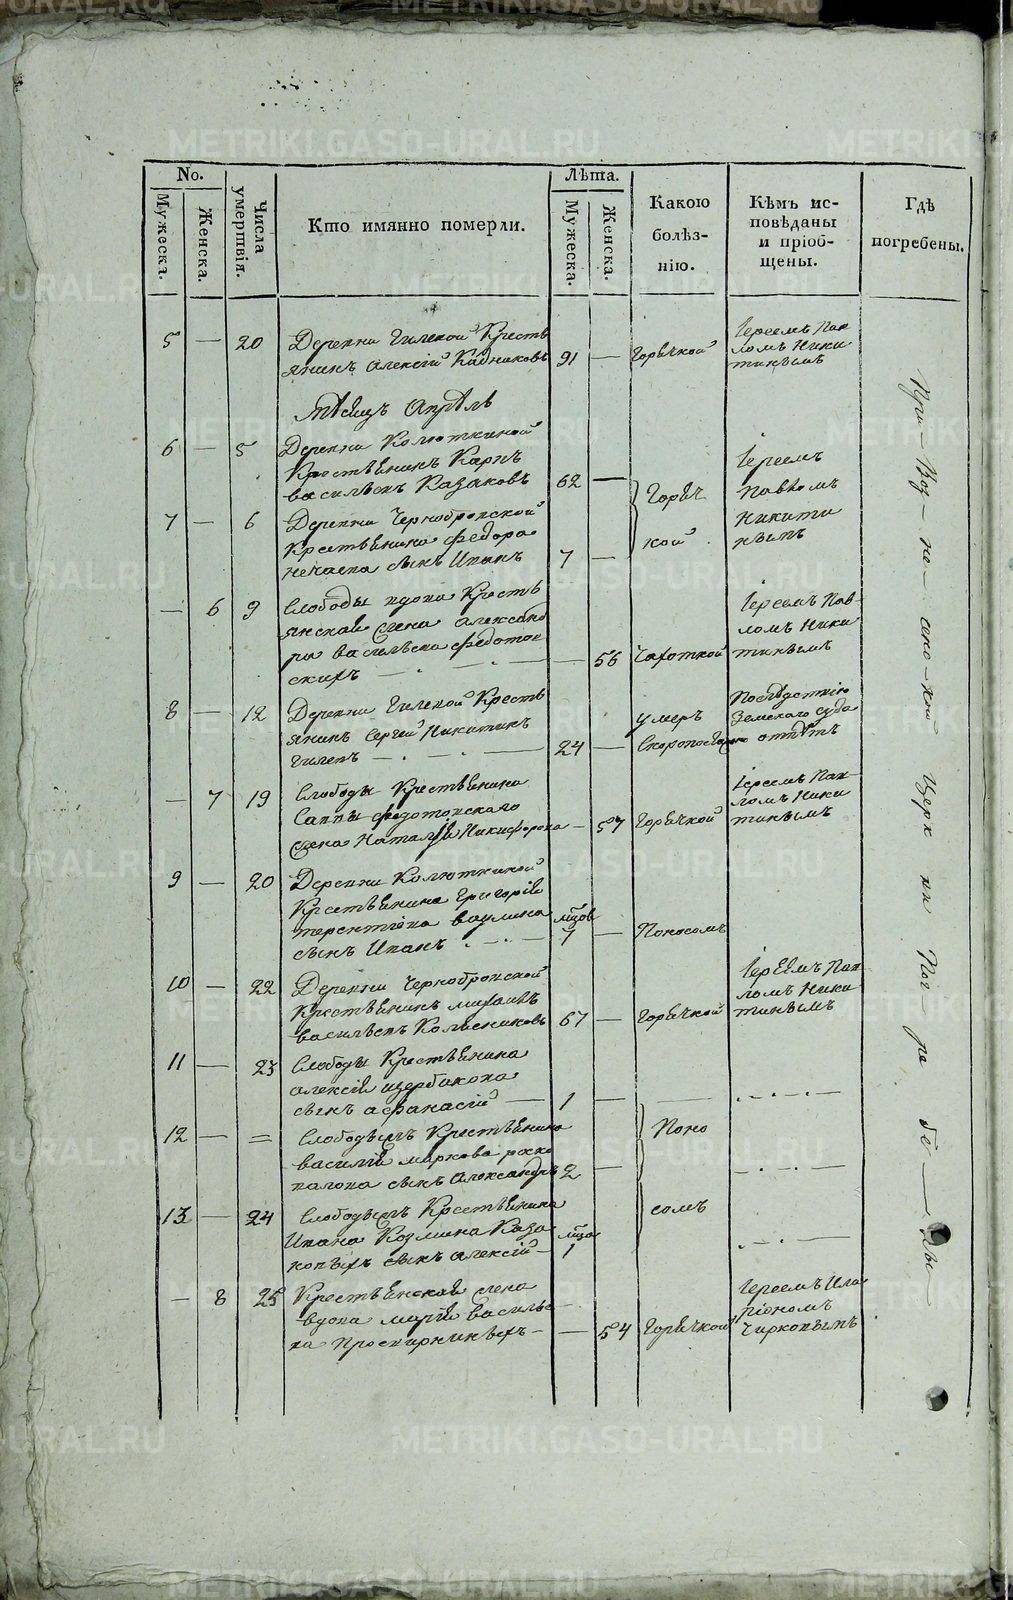 METRIKI.GASO-URAL.RU
No.
Мужеска.
Женска.
Числа умертвія.
Кто имянно померли.
Лѣта.
Мужеска.
Женска.
Какою
болѣз-
нію.
Кѣмъ ис-
повѣданы
и пріоб-
щены.
Гдѣ
погребены.
5 — 20 Деревни Гилевой Кресть
янинъ Алексій Кадниковъ 91 — Горячкой
Іереемъ Пав
ломъ Ники
тинымъ
Мѣсяцъ Апрѣль
6 — 5 Деревни Колюткиной
Крестьянинъ Карпъ
Васильевъ Казаковъ 62 —
7 — 6 Деревни Чернобровской
Крестьянина Федора
Нечаева сынъ Иванъ 7 —
Горяч
кой
Іереемъ
Павломъ
Никити
нымъ
— 6 9 Слободы вдова Кресть
янская жена Александ
ра Васильева Федотов
скихъ — 56 Чахоткой
Іереемъ Пав
ломъ Ники
тинымъ
8 — 12 Деревни Гилевой Кресть
янинъ Сергей Никитинъ
Гилевъ — 24 —
умеръ
Скоропостижно
Послѣдствію
Земскаго суда
отдѣтъ
— 7 19 Слободы Крестьянина
Саввы Федотовскаго
жена Наталья Никифорова — 57 Горячкой
Іереемъ Пав-
ломъ Ники
тинымъ
9 — 20 Деревни Колюткиной
Крестьянина Григорія
Терентіева Ваулина
сынъ Иванъ мцов 7 — Поносомъ
10 — 22 Деревни Чернобровской
Крестьянинъ Михаилъ
Васильевъ Колесниковъ 67 — Горячкой
Іереемъ Пав
ломъ Ники
тинымъ
11 — 23 Слободы Крестьянина
Алексія Щербакова
сынъ Афанасій — 1 —
12 — = Слободыжъ Крестьянина
Василія Маркова
сынъ Александръ 2 —
Поно
сомъ
13 — 24 Слободыжъ Крестьянина
Ивана Козмина Каза
ковыхъ сынъ Алексій — 1
— 8 25 Крестьянская жена
вдова Марія Василье
ва Просвирниныхъ — 54 Горячкой
Іереемъ Ила
ріономъ
Чирковымъ
При Воз не сен ско й Церк ви По г ре бе ны